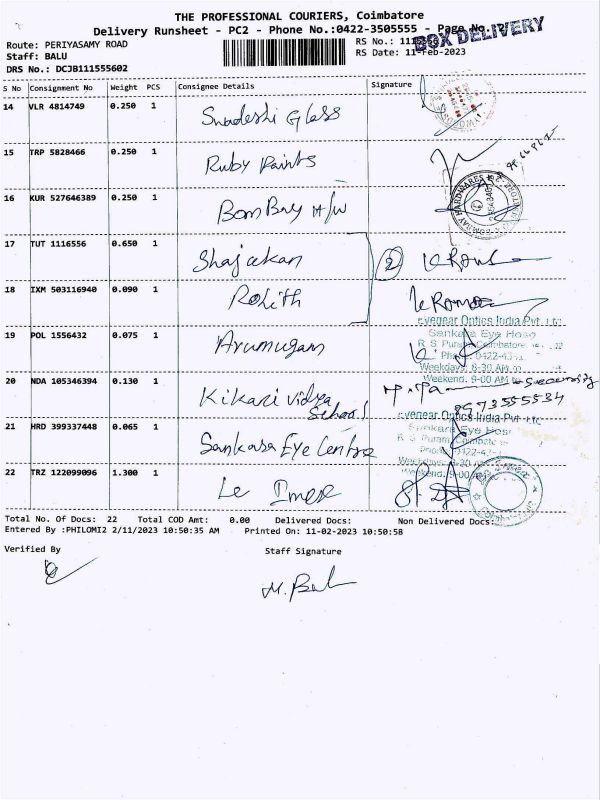 THE PROFESSIONAL COURIERS, Coimbatore
Delivery Runsheet - PC2 - Phone No.:0422-3505555 - Page No.
BOX DELIVERY
Route: PERIYASAMY ROAD
RS No.:
Staff: BALU
RS Date: 11-Feb-2023
DRS No.: DCJB111555602
S No Consignment No Weight PCS Consignee Details Signature
14 VLR 4814749 0.250 1 Swadeshi Glass
15 TRP 5828466 0.250 1 Ruby Paints
16 KUR 527646389 0.250 1 BomBay H/W
17 TUT 1116556 0.650 1 Shajakan 2
18 IXM 503116940 0.090 1 Rohith
eyegear Optics India Pvt. Ltd
Sankara Eye Hosp
19 POL 1556432 0.075 1 Arumugam
R S Puram, Coimbatore
Weekdays: 8-30 AM to
Weekend. 9-00 AM to
20 NDA 105346394 0.130 1 Kikani Vidya School
Security
8973555534
eyegear Optics India Pvt. Ltd
Sankara Eye Hosp
21 HRD 399337448 0.065 1 Sankara Eye Centre
R S Puram, Coimbatore
22 TRZ 122099096 1.300 1
Total No. Of Docs: 22 Total COD Amt: 0.00 Delivered Docs: Non Delivered Docs:
Entered By :PHILOMI2 2/11/2023 10:50:35 AM Printed On: 11-02-2023 10:50:58
Verified By Staff Signature
M. Bal